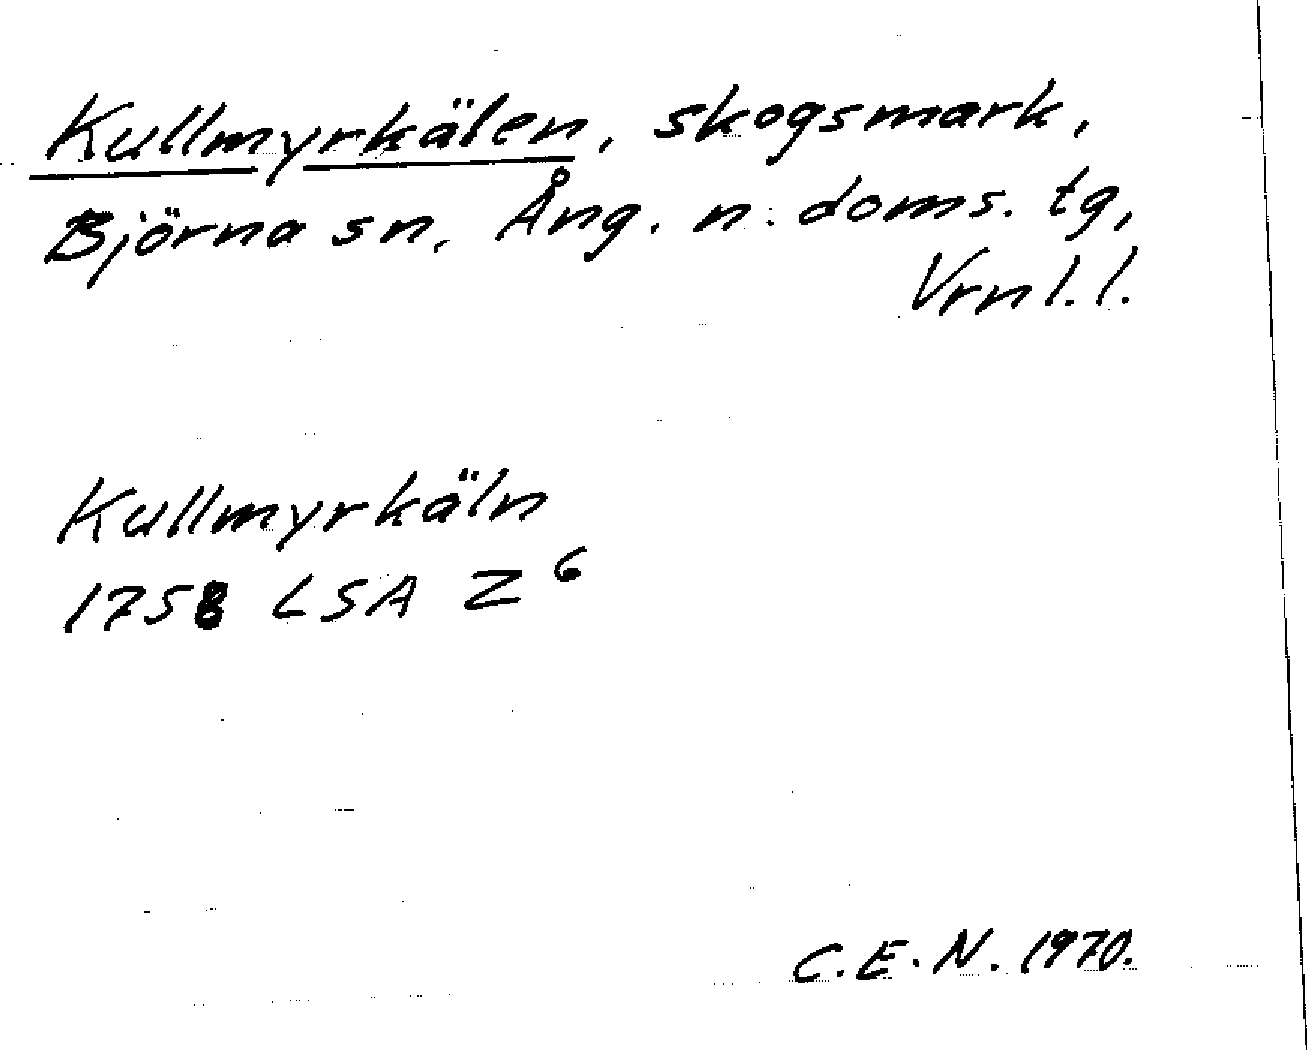 Kullmyrkälen, skogsmark,
Björna sn, Ång. n. doms. tg,
Vrnl.l.
Kullmyrkäln
1758 LSA Z 6
C.E.N. 1970.